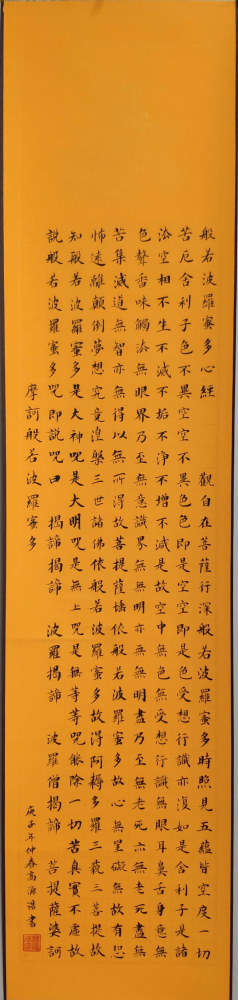 般若波羅蜜多心經 觀自在菩薩行深般若波羅蜜多時照見五蘊皆空度一切
苦厄舍利子色不異空空不異色色即是空空即是色受想行識亦復如是舍利子是諸
法空相不生不滅不垢不淨不增不減是故空中無色無受想行識無眼耳鼻舌身意無
色聲香味觸法無眼界乃至無意識界無無明亦無無明盡乃至無老死亦無老死盡無
苦集滅道無智亦無得以無所得故菩提薩埵依般若波羅蜜多故心無罣礙無故有恐
怖遠離顛倒夢想究竟涅槃三世諸佛依般若波羅蜜多故得阿耨多羅三藐三菩提故
知般若波羅蜜多是大神呪是大明呪是無上呪是無等等呪能除一切苦真實不虛故
說般若波羅蜜多呪即說呪曰 揭諦揭諦 波羅揭諦 波羅僧揭諦 菩提薩婆訶
摩訶般若波羅蜜多
庚子年仲春高書